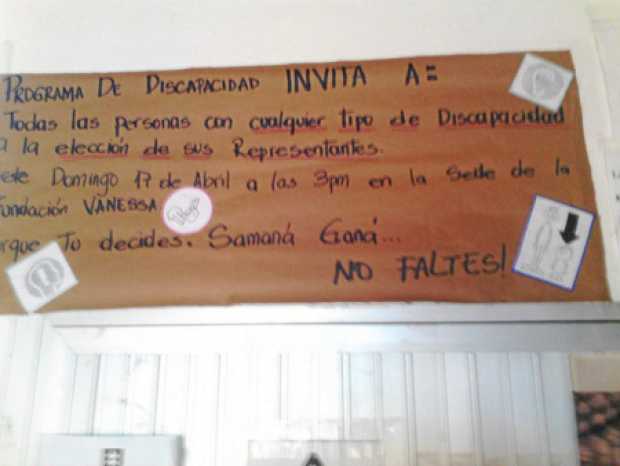 PROGRAMA DE DISCAPACIDAD INVITA A=
Todas las personas con cualquier tipo de Discapacidad
a la elección de sus Representantes.
este Domingo 17 de Abril a las 3pm en la Sede de la
Fundación VANESSA
rque Tú decides. Samaná Ganá...
NO FALTES!